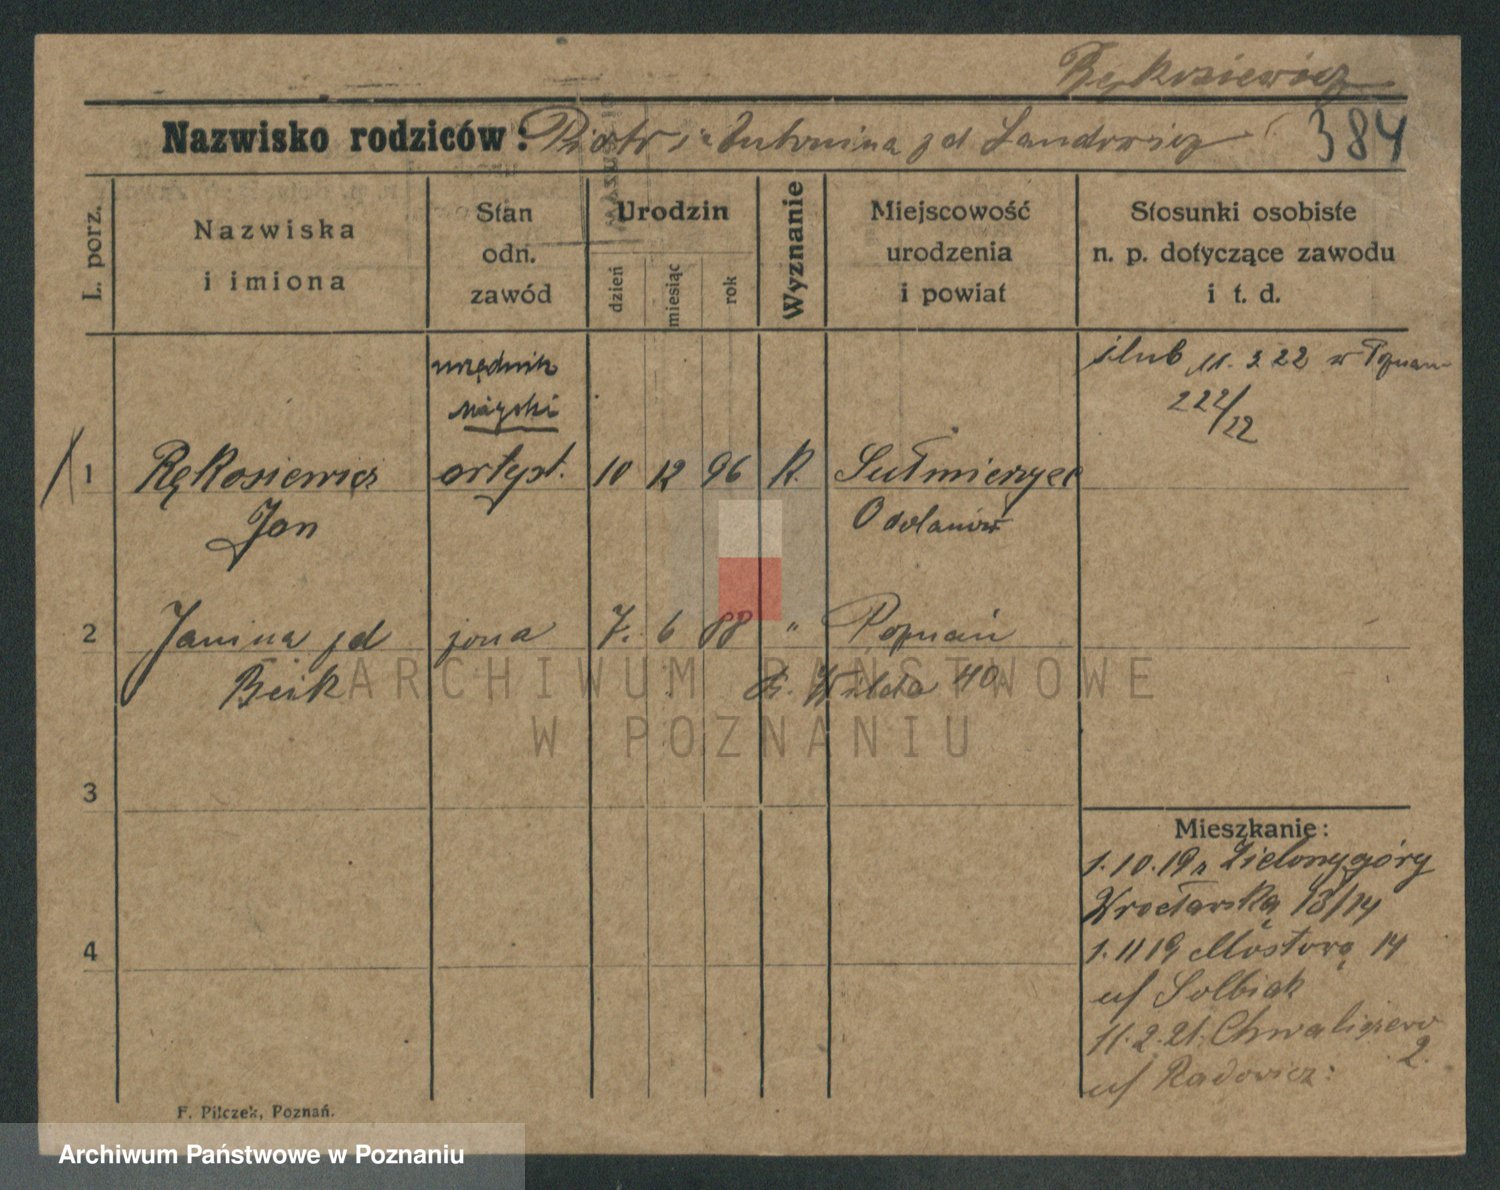 Rękosiewicz
Nazwisko rodziców: Piotr i Antonina zd Landowicz 384
L. porz.
Nazwiska
i imiona
Stan
odn.
zawód
Urodzin
dzień
miesiąc
rok
Wyznanie
Miejscowość
urodzenia
i powiat
Stosunki osobiste
n. p. dotyczące zawodu
i t. d.
urzędnik
miejski
ślub 11. 3 22 w Poznan
222/22
1 Rękosiewicz artyst. 10 12 96 K. Sulmierzyce
Jan Odolanów
2 Janina zd żona 7. 6 88 " Poznań
Beik Wilda 40
ARCHIWUM PAŃSTWOWE
W POZNANIU
3
Mieszkanie:
1.10.19 z Zielonygóry
Wrocławska 13/14
4
1.11 19 Mostowa 14
u/ Solbiak
11.2.21. Chwaliszewo
2.
u/ Radowicz:
F. Pilczek, Poznań.
Archiwum Państwowe w Poznaniu